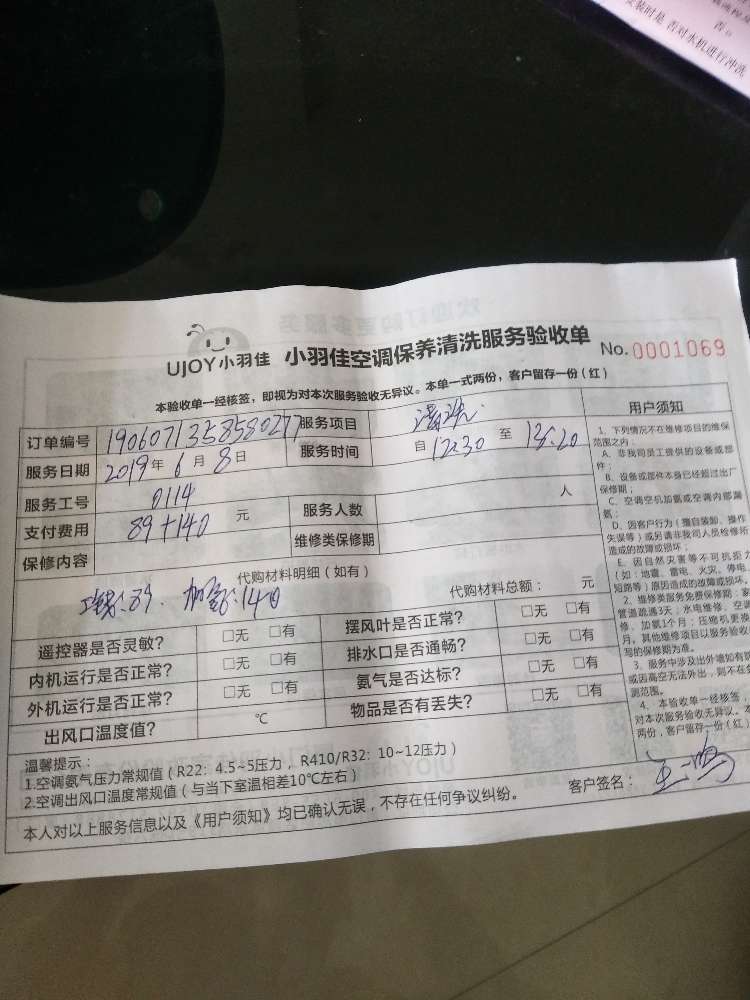 安装时是否对水机进行冲洗
否。
UJOY小羽佳 小羽佳空调保养清洗服务验收单 No.0001069
本验收单一经核签，即视为对本次服务验收无异议。本单一式两份，客户留存一份（红）
订单编号 1906071358580277 服务项目 清洗
服务日期 2019年6月8日 服务时间 自12:30至13:20
服务工号 0114
支付费用 89+140元 服务人数 人
保修内容 维修类保修期
代购材料明细（如有） 代购材料总额： 元
:89. 加氨:140
遥控器是否灵敏？ □无 □有 摆风叶是否正常？ □无 □有
内机运行是否正常？ □无 □有 排水口是否通畅？ □无 □有
外机运行是否正常？ □无 □有 氨气是否达标？ □无 □有
出风口温度值？ ℃ 物品是否有丢失？ □无 □有
温馨提示：
1.空调氨气压力常规值（R22：4.5~5压力，R410/R32：10~12压力）
2.空调出风口温度常规值（与当下室温相差10℃左右）
客户签名：
本人对以上服务信息以及《用户须知》均已确认无误，不存在任何争议纠纷。
用户须知
1、下列情况不在维修项目的维保
范围之内：
A、非我司员工提供的设备或部
件；
B、设备或部件本身已经超过出厂
保修期；
C、空调空机加氨或空调内部漏
氨；
D、因客户行为（擅自装卸、操作
失误等）或另请非我司人员检修所
造成的故障或损坏；
E、因自然灾害等不可抗拒力
（如：地震、雷电、火灾、停电、
短路等）原因造成的故障或损坏。
2、维修类服务免费保修期：家
管道疏通3天；水电维修、空
修、加氨1个月；压缩机更换
月。其他维修项目以服务验收
写的保修期为准。
3、服务中涉及出外墙如有防
或因高空无法外出，则不在
测范围。
4、本验收单一经核签，
对本次服务验收无异议。本
两份，客户留存一份（红）